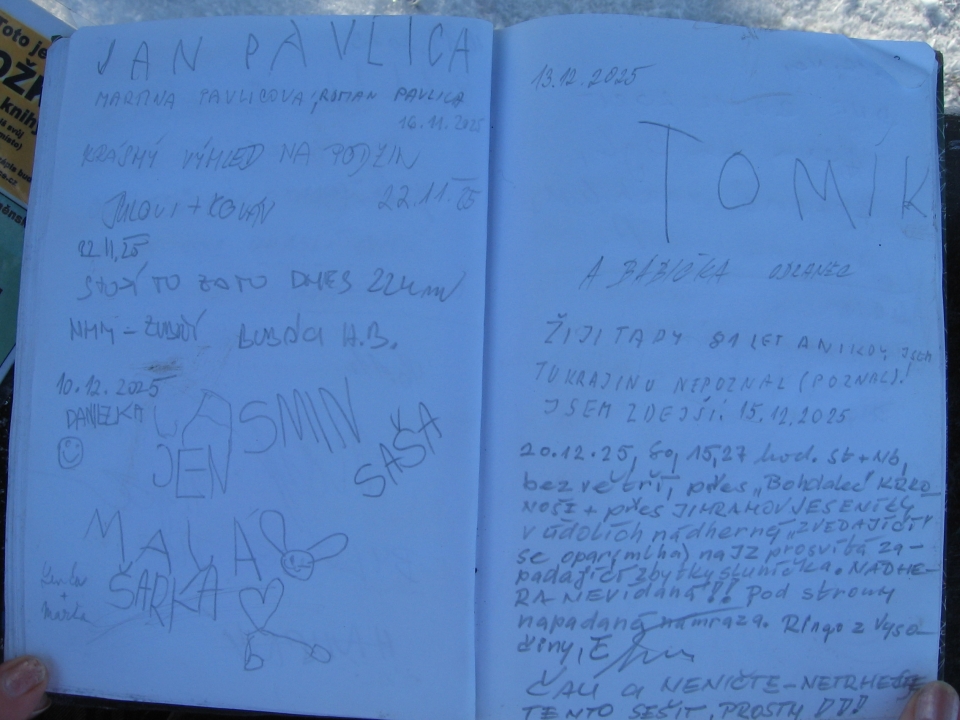 Toto je
knih
JAN PAVLICA
MARTINA PAVLICOVA, ROMAN PAVLICA
16.11.2025
KRÁSNÝ VÝHLED NA PODZIM
22.11.25
22.11.25
STOJÍ TO ZATO DNES
BUBÁCI H.B.
10.12.2025
DANIELKA
JASMIN
JEN
SAŠA
MALÁ
ŠÁRKA
13.12.2025
TOMÍK
A BABIČKA
ŽIJI TADY 81 LET A NIKDY JSEM
TU KRAJINU NEPOZNAL (POZNAL)!
JSEM ZDEJŠÍ. 15.12.2025
20.12.25, So, 15,27 hod. st+Nb,
bezvětří, přes „Bohdalec" KRKO-
NOŠE + přes JIMRAMOV JESENÍKY
v údolích nádherný „ZVEDAJÍCÍ"
se opar (mlha) na JZ prosvítá za-
padající zbytky sluníčka. NÁDHE-
RA NEVÍDANÁ!! Pod stromy
napadaná námraza. Ringo z Vyso-
činy, E
ČAU a NENIČTE-NETRHEJTE
TENTO SEŠIT, PROSTĚ